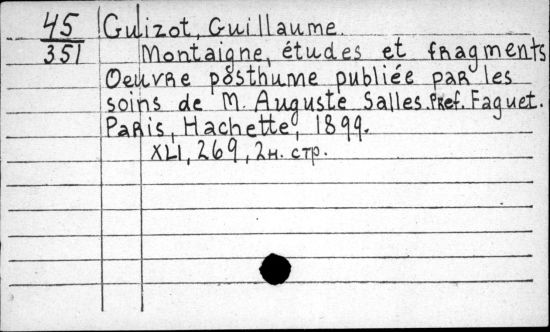 45 Guizot, Guillaume.
351 Montaigne, études et fragments
Oeuvre posthume publiée par les
soins de M. Auguste Salles. Pref. Faguet.
Paris, Hachette, 1899.
XLI, 269, 2н. стр.